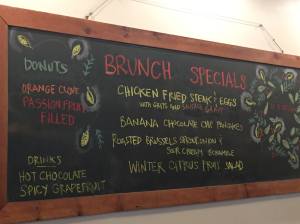 DONUTS
ORANGE CLOVE
PASSION FRUIT
FILLED
DRINKS
HOT CHOCOLATE
SPICY GRAPEFRUIT
BRUNCH SPECIALS
CHICKEN FRIED STEAK & EGGS
WITH GRITS AND SAUSAGE GRAVY
BANANA CHOCOLATE CHIP PANCAKES
ROASTED BRUSSELS SPROUT, ONION &
SOUR CREAM SCRAMBLE
WINTER CITRUS FRUIT SALAD